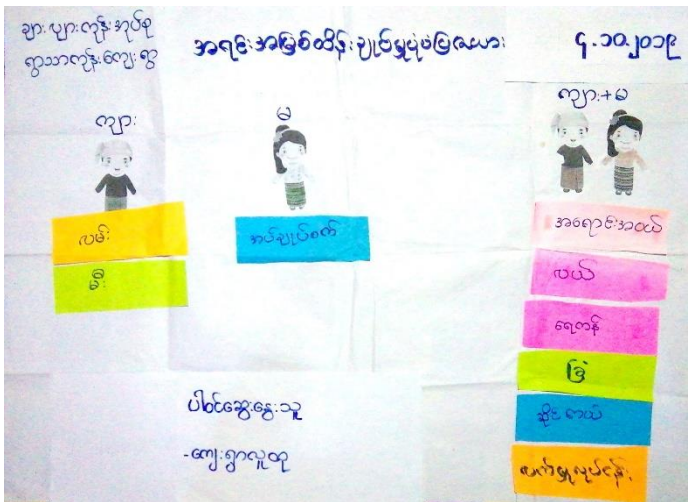 ချား ပျားကုန်းအုပ်စု
ရွာသာကုန်းကျေးရွာ
အရင်းအမြစ်ထိန်းချုပ်မှုပုံစံပြဇယား
၄.၁၀.၂၀၁၉
ကျား
မ
ကျား+မ
လမ်း
မီး
အပ်ချုပ်စက်
အရောင်းအဝယ်
လယ်
ရေကန်
ခြံ
ဆိုင်ကယ်
လက်မှုလုပ်ငန်း
ပါဝင်ဆွေးနွေးသူ
-ကျေးရွာလူထု